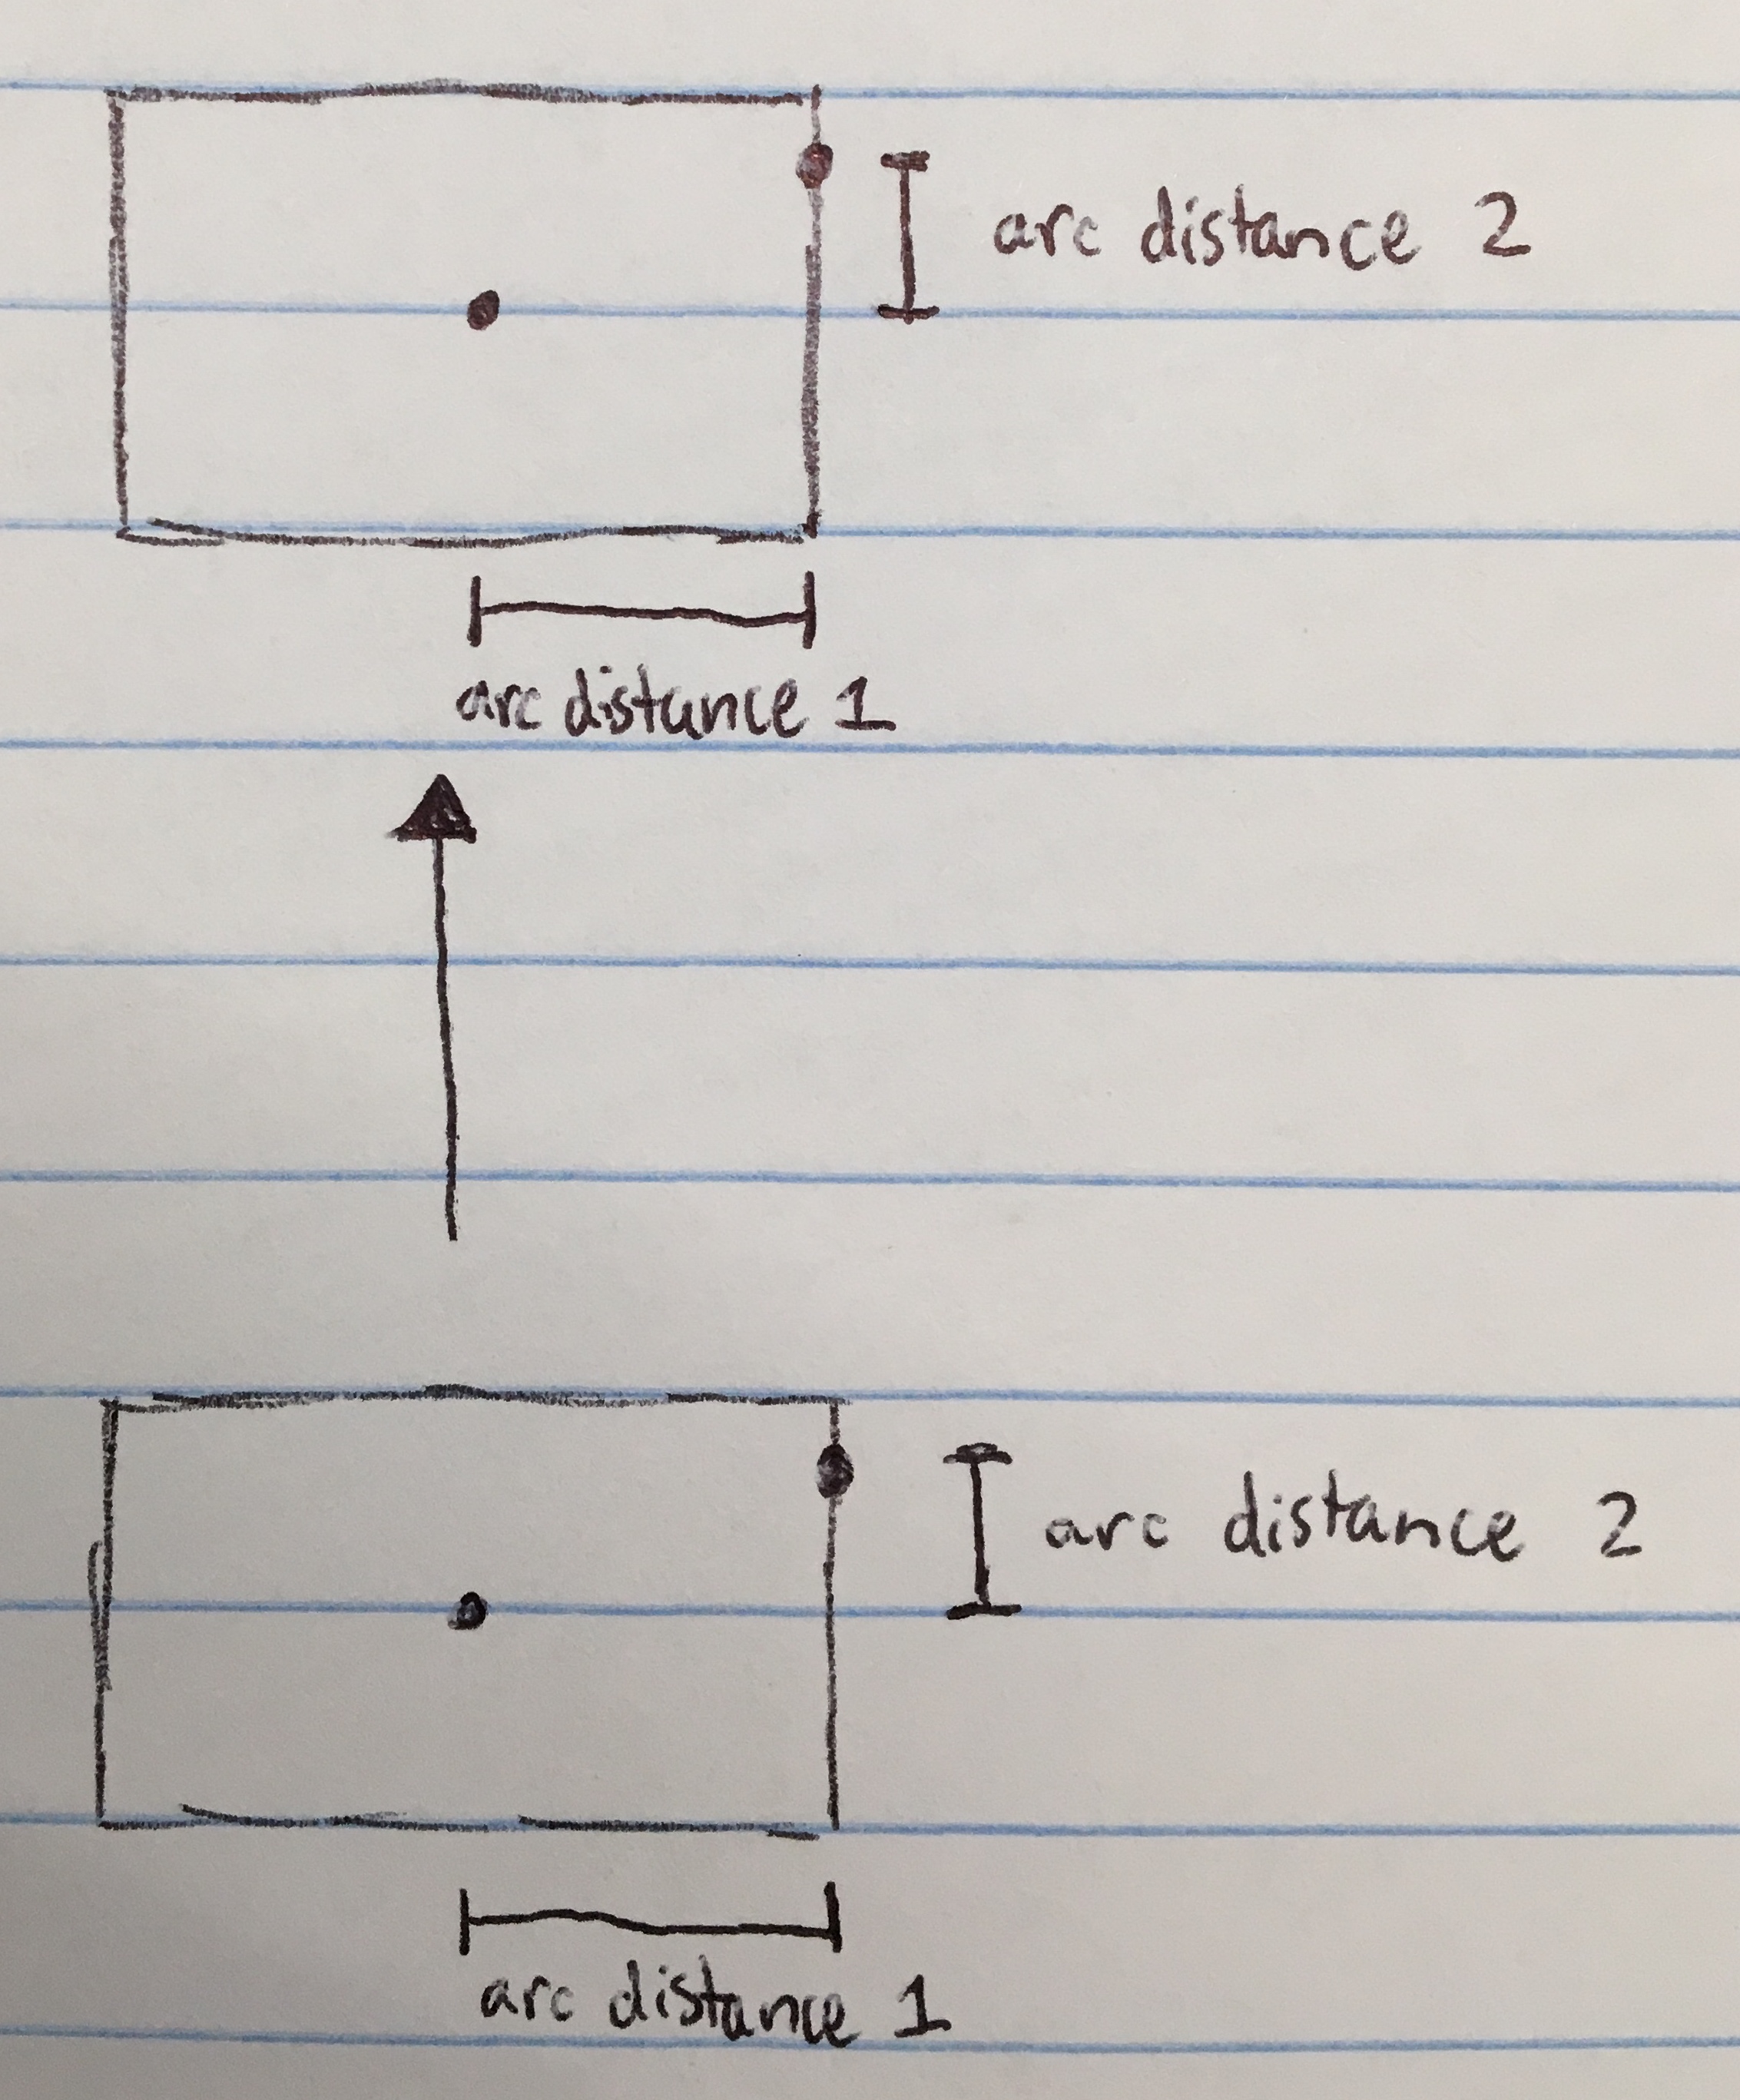 arc distance 2
arc distance 1
arc distance 2
arc distance 1